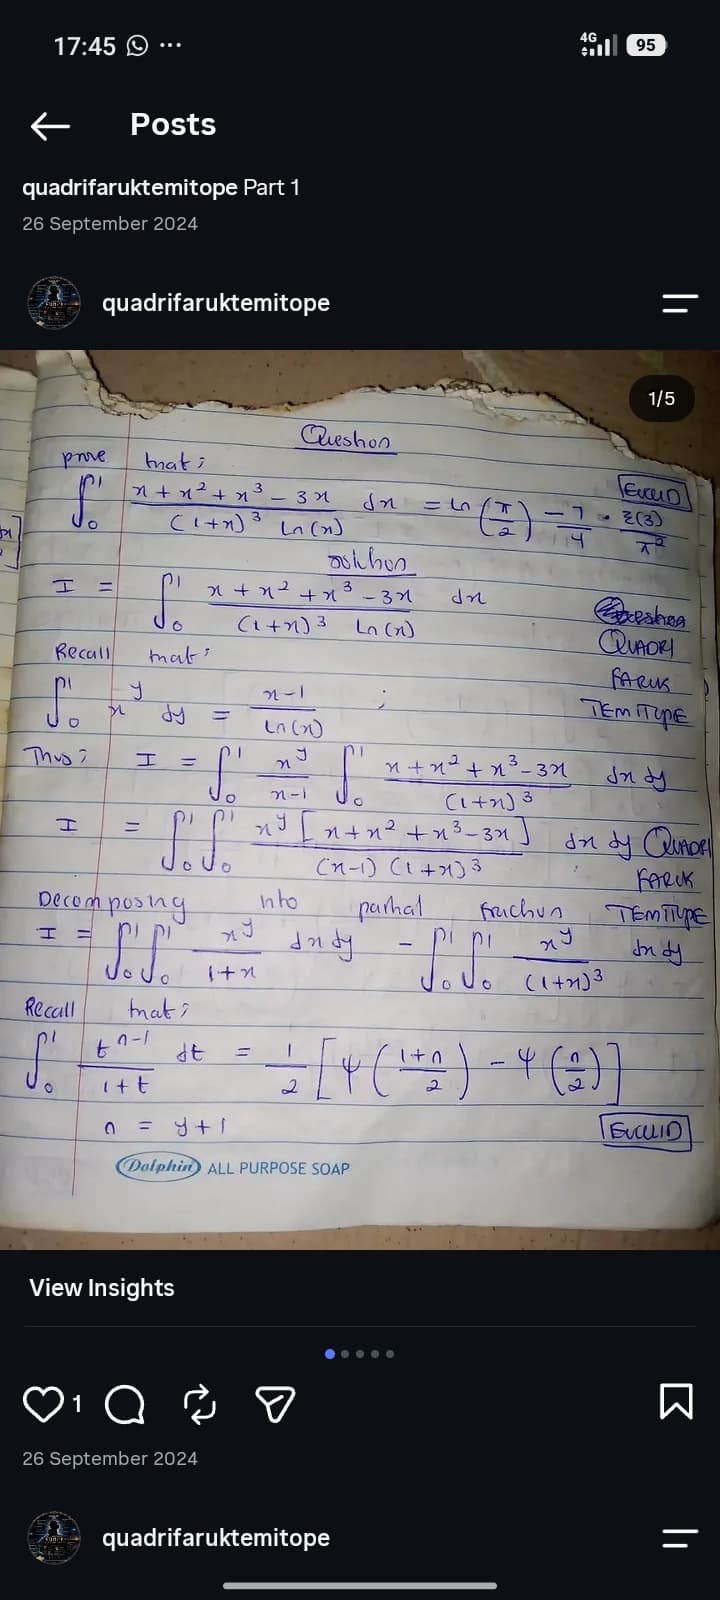 17:45 ...
4G 95
Posts
quadrifaruktemitope Part 1
26 September 2024
quadrifaruktemitope
1/5
Question
prove that;
∫₀¹ (x + x² + x³ - 3x) / ((1+x)³ Ln(x)) dx = Ln(π/2) - 7/4 · ξ(3)/π²
EUCLID
solution
I = ∫₀¹ (x + x² + x³ - 3x) / ((1+x)³ Ln(x)) dx
QUADRI
Recall that:
FARUK
∫₀¹ x^y dy = (x-1) / Ln(x) ;
TEMITOPE
Thus; I = ∫₀¹ x^y/(x-1) ∫₀¹ (x + x² + x³ - 3x) / (1+x)³ dx dy
I = ∫₀¹ ∫₀¹ x^y [x + x² + x³ - 3x] / ((x-1) (1+x)³) dx dy QUADRI
FARUK
Decomposing into partial fraction TEMITOPE
I = ∫₀¹ ∫₀¹ x^y / (1+x) dx dy - ∫₀¹ ∫₀¹ x^y / (1+x)³ dx dy
Recall that;
∫₀¹ t^(n-1) / (1+t) dt = 1/2 [ψ((1+n)/2) - ψ(n/2)]
n = y+1
EUCLID
Dolphin ALL PURPOSE SOAP
View Insights
1
26 September 2024
quadrifaruktemitope